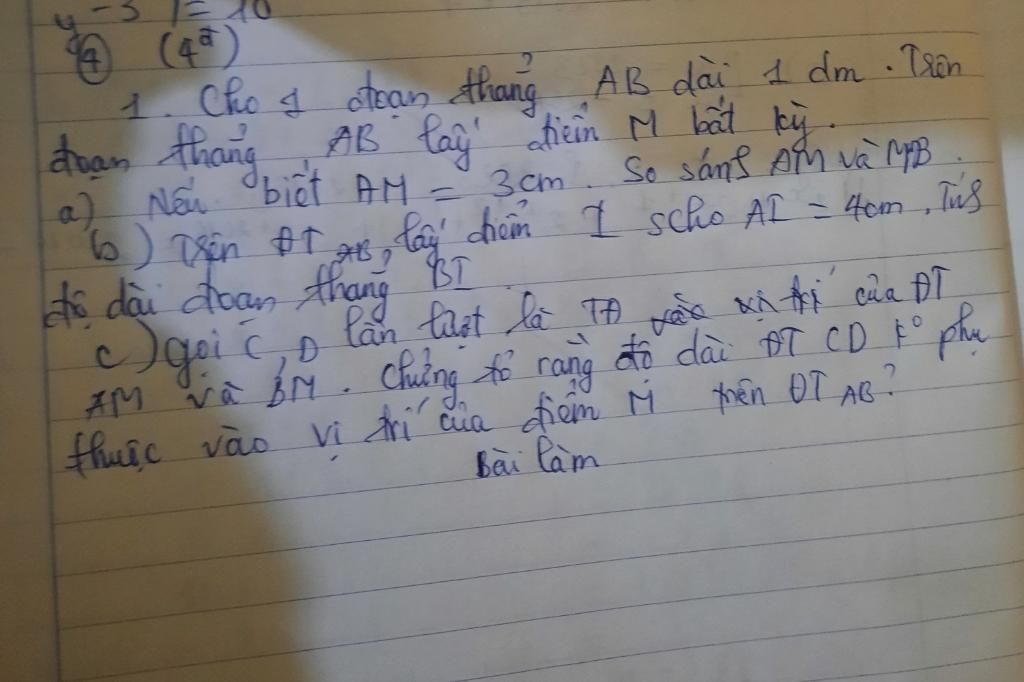 y - 3 | = 10
④ (4đ)
1. Cho 1 đoạn thẳng AB dài 1 dm. Trên
đoạn thẳng AB lấy điểm M bất kỳ.
a) Nếu biết AM = 3cm. So sánh AM và MB.
b) Trên ĐT AB, lấy điểm I scho AI = 4cm. Tính
độ dài đoạn thẳng BI
c) gọi C, D lần lượt là TĐ của ĐT
AM và BM. Chứng tỏ rằng độ dài ĐT CD ko phụ
thuộc vào vị trí của điểm M trên ĐT AB?
Bài làm